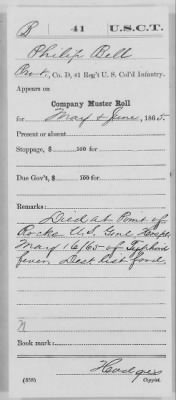 B 41 U.S.C.T.
Philip Bell
Pvt., Co. D, 41 Reg't U. S. Col'd Infantry.
Appears on
Company Muster Roll
for May & June, 1865.
Present or absent
Stoppage, $ 100 for
Due Gov't, $ 100 for
Remarks:
Died at Point of
Rocks U.S. Genl Hospl
May 16/65 of Typhoid
fever. Desct list
Book mark:
Hodges
(358) Copyist.